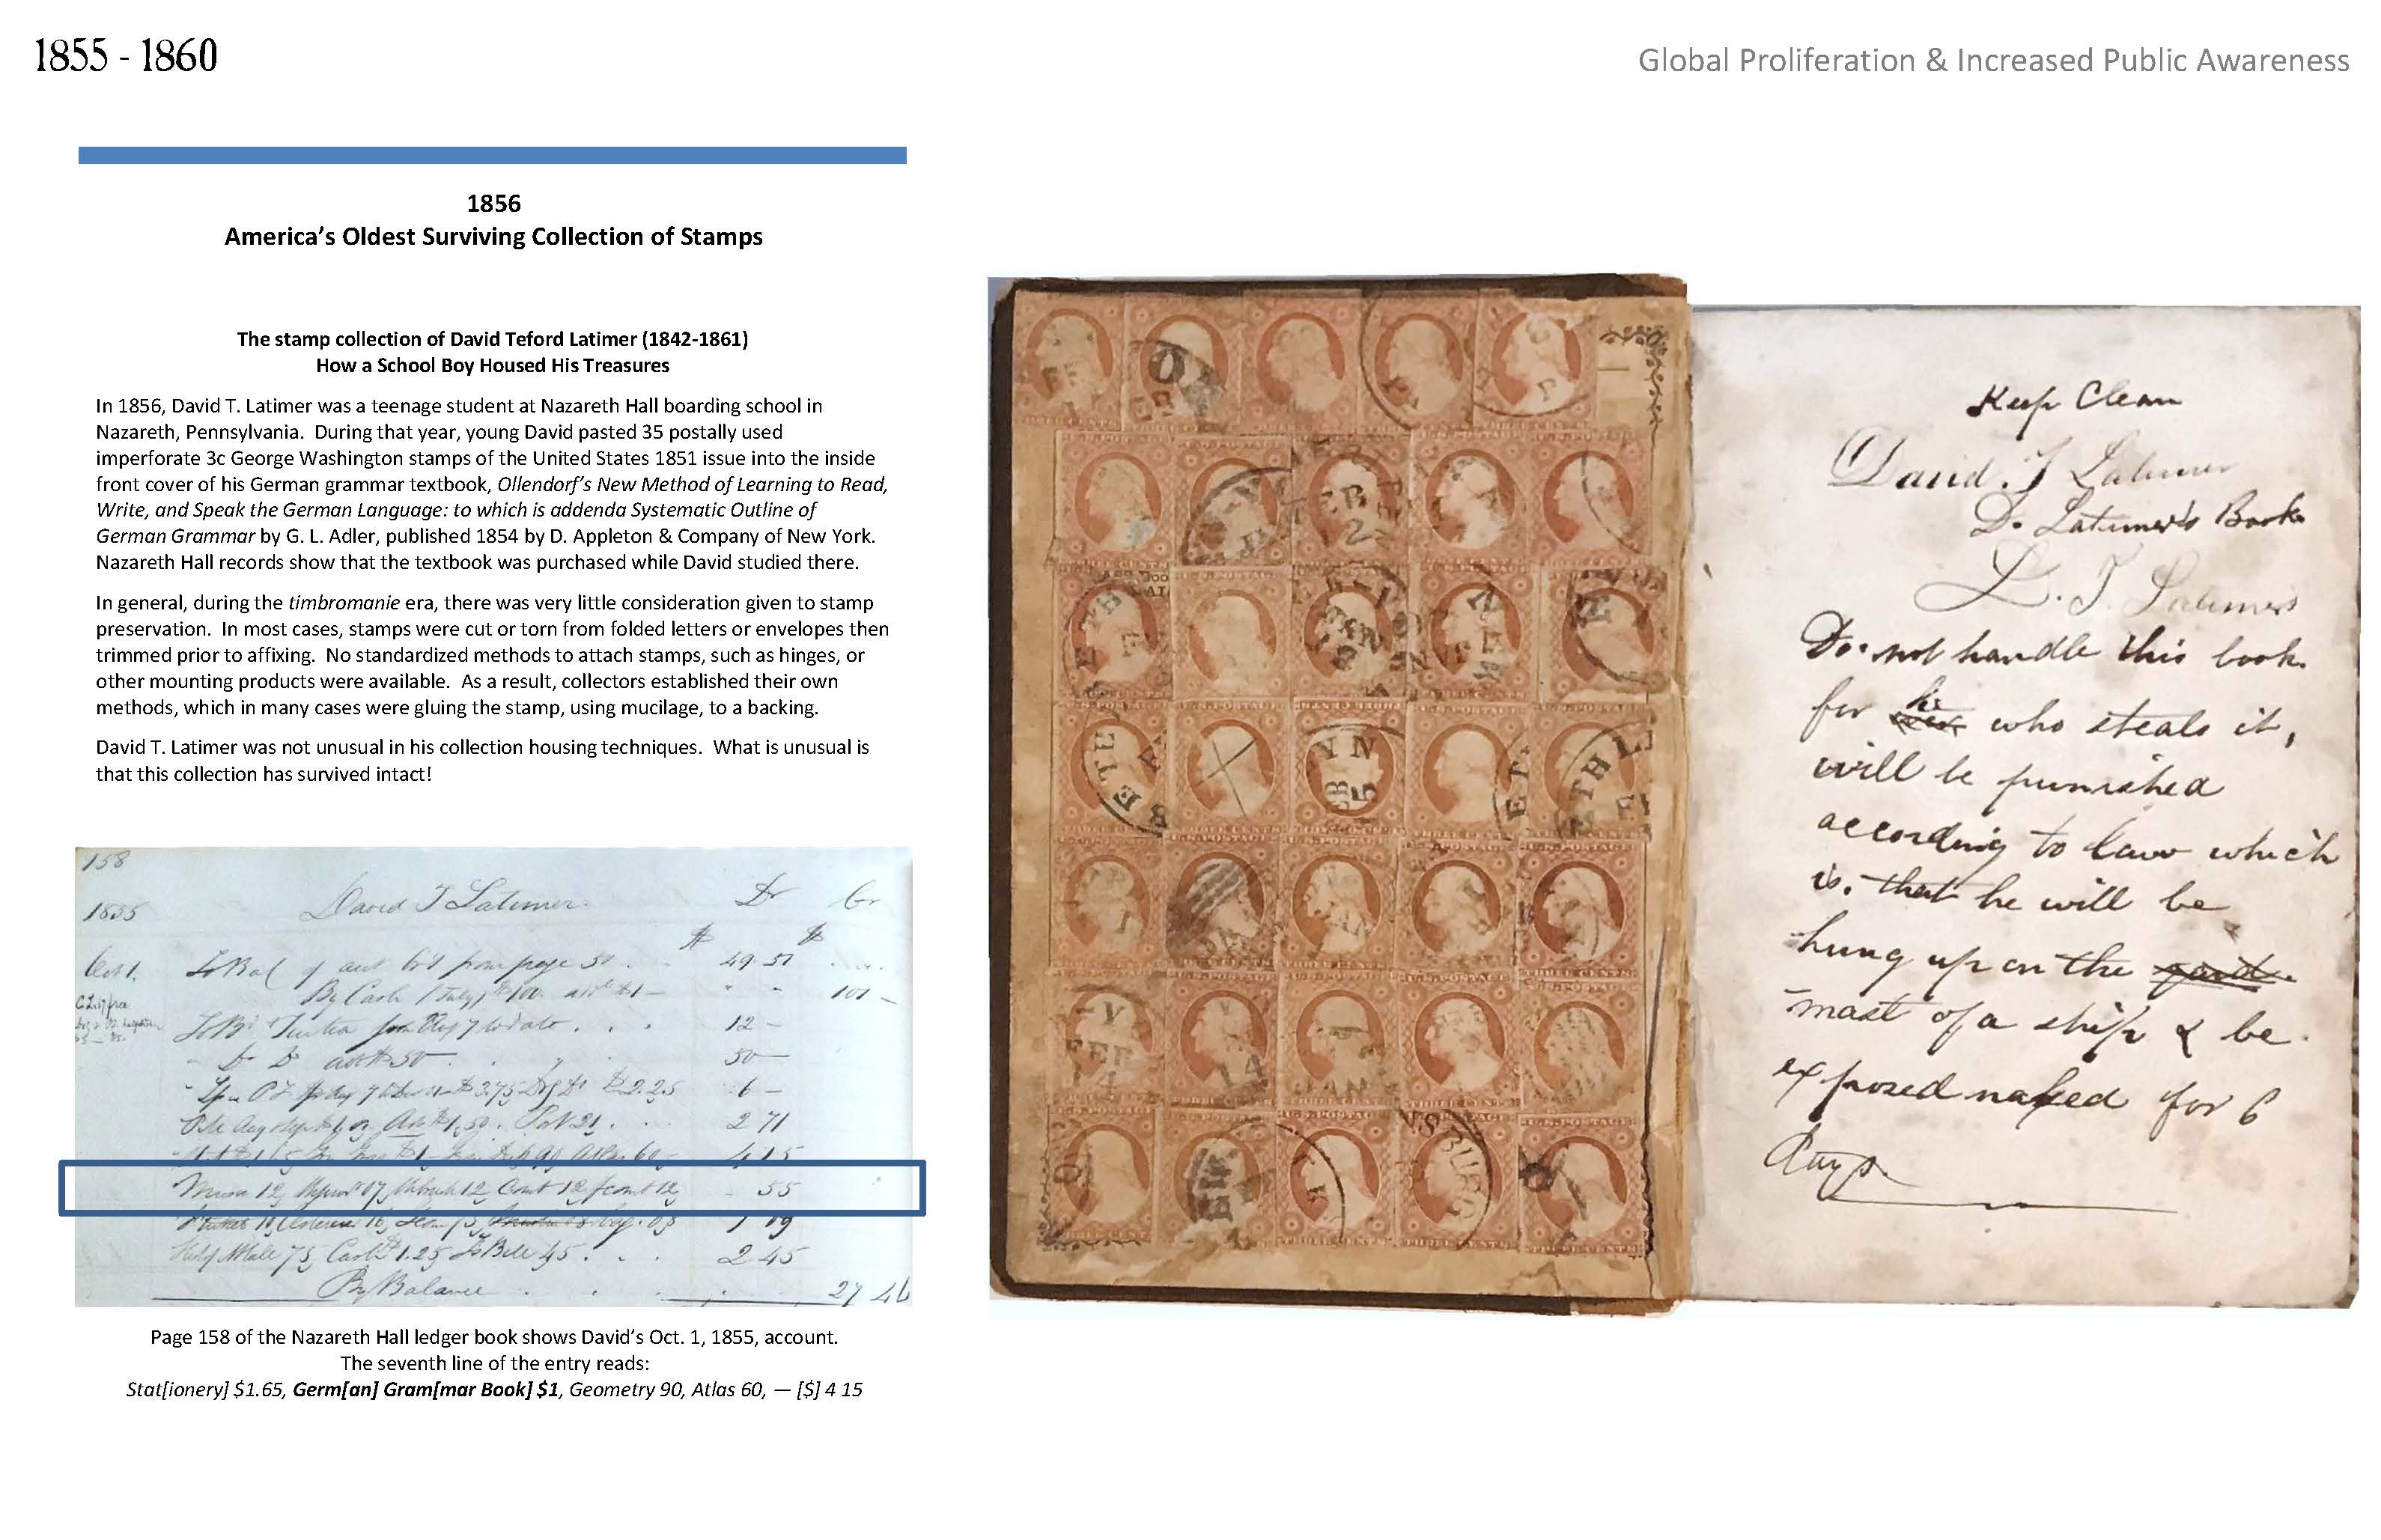 1855 - 1860
Global Proliferation & Increased Public Awareness
1856
America's Oldest Surviving Collection of Stamps
The stamp collection of David Teford Latimer (1842-1861)
How a School Boy Housed His Treasures
In 1856, David T. Latimer was a teenage student at Nazareth Hall boarding school in
Nazareth, Pennsylvania. During that year, young David pasted 35 postally used
imperforate 3c George Washington stamps of the United States 1851 issue into the inside
front cover of his German grammar textbook, Ollendorf's New Method of Learning to Read,
Write, and Speak the German Language: to which is addenda Systematic Outline of
German Grammar by G. L. Adler, published 1854 by D. Appleton & Company of New York.
Nazareth Hall records show that the textbook was purchased while David studied there.
In general, during the timbromanie era, there was very little consideration given to stamp
preservation. In most cases, stamps were cut or torn from folded letters or envelopes then
trimmed prior to affixing. No standardized methods to attach stamps, such as hinges, or
other mounting products were available. As a result, collectors established their own
methods, which in many cases were gluing the stamp, using mucilage, to a backing.
David T. Latimer was not unusual in his collection housing techniques. What is unusual is
that this collection has survived intact!
158
1855 David T Latimer Dr Cr
$ $
Oct 1. To Bal of from page 50 49.51
By Cash 101 -
12 -
50 -
6 -
2 71
4 15
12 12 12 55
1 09
75 1.25 45 2 45
By Balance 27 46
Page 158 of the Nazareth Hall ledger book shows David's Oct. 1, 1855, account.
The seventh line of the entry reads:
Stat[ionery] $1.65, Germ[an] Gram[mar Book] $1, Geometry 90, Atlas 60, — [$] 4 15
Keep Clean
David T Latimer
D. Latimer's Book
D. T. Latimers
Do not handle this book
for he who steals it,
will be punished
according to law which
is. that he will be
hung up on the
mast of a ship & be
exposed naked for 6
days